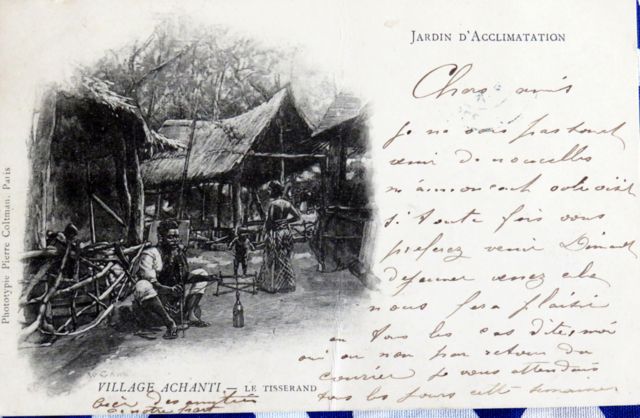 JARDIN D'ACCLIMATATION
Chers amis
Je ne vois pas
venir de nouvelles
m'annoncant votre visite
si toute fois vous
préférez venir Dimanche
déjeuner venez cela
nous fera plaisir
en tous les cas dites moi
oui ou non par retour du
courrier je vous attendais
tous les jours cette semaine
Phototypie Pierre Coltman, Paris
VILLAGE ACHANTI. — LE TISSERAND